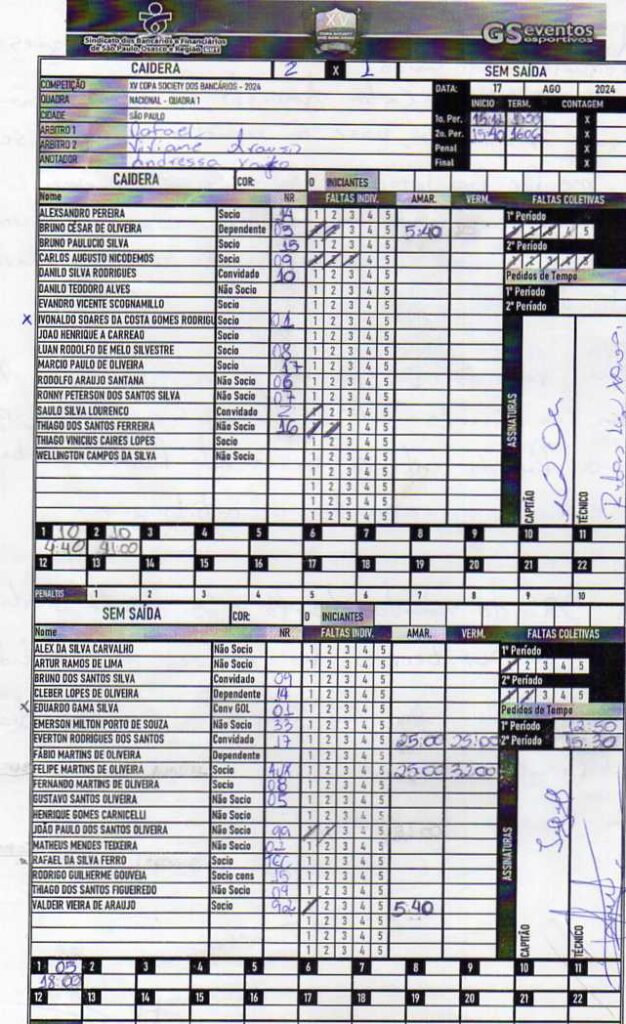 Sindicato dos Bancários e Financiários
de São Paulo, Osasco e Região CUT
XV
GS eventos
esportivos
CAIDERA 2 X 1 SEM SAÍDA
COMPETIÇÃO XV COPA SOCIETY DOS BANCÁRIOS - 2024
DATA: 17 AGO 2024
QUADRA NACIONAL - QUADRA 1
INICIO TERM. CONTAGEM
CIDADE SÃO PAULO
1o. Per. X
ARBITRO 1 Rafael
2o. Per. 15:40 1606 X
ARBITRO 2 Viviane Araujo
Penal X
ANOTADOR Andressa
Final X
CAIDERA COR: 0 INICIANTES
Nome NR FALTAS INDIV. AMAR. VERM. FALTAS COLETIVAS
ALEXSANDRO PEREIRA Socio 14 1 2 3 4 5 1º Período
BRUNO CÉSAR DE OLIVEIRA Dependente 03 1 2 3 4 5 5:40 1 2 3 4 5
BRUNO PAULUCIO SILVA Socio 15 1 2 3 4 5 2º Período
CARLOS AUGUSTO NICODEMOS Socio 09 1 2 3 4 5 1 2 3 4 5
DANILO SILVA RODRIGUES Convidado 10 1 2 3 4 5 Pedidos de Tempo
DANILO TEODORO ALVES Não Socio 1 2 3 4 5 1º Período
EVANDRO VICENTE SCOGNAMILLO Socio 1 2 3 4 5 2º Período
X IVONALDO SOARES DA COSTA GOMES RODRIGU Socio 01 1 2 3 4 5
JOAO HENRIQUE A CARREAO Socio 1 2 3 4 5
LUAN RODOLFO DE MELO SILVESTRE Socio 08 1 2 3 4 5
MARCIO PAULO DE OLIVEIRA Socio 17 1 2 3 4 5
RODOLFO ARAUJO SANTANA Não Socio 06 1 2 3 4 5
RONNY PETERSON DOS SANTOS SILVA Não Socio 07 1 2 3 4 5
SAULO SILVA LOURENCO Convidado 2 1 2 3 4 5
THIAGO DOS SANTOS FERREIRA Não Socio 16 1 2 3 4 5
THIAGO VINICIUS CAIRES LOPES Socio 1 2 3 4 5
WELLINGTON CAMPOS DA SILVA Não Socio 1 2 3 4 5
1 2 3 4 5
1 2 3 4 5
1 2 3 4 5
1 2 3 4 5
ASSINATURAS
CAPITÃO
TÉCNICO
1 10 2 10 3 4 5 6 7 8 9 10 11
4:40 41:00
12 13 14 15 16 17 18 19 20 21 22
PENALTIS 1 2 3 4 5 6 7 8 9 10
SEM SAÍDA COR: 0 INICIANTES
Nome NR FALTAS INDIV. AMAR. VERM. FALTAS COLETIVAS
ALEX DA SILVA CARVALHO Não Socio 1 2 3 4 5 1º Período
ARTUR RAMOS DE LIMA Não Socio 1 2 3 4 5 1 2 3 4 5
BRUNO DOS SANTOS SILVA Convidado 09 1 2 3 4 5 2º Período
CLEBER LOPES DE OLIVEIRA Dependente 14 1 2 3 4 5 1 2 3 4 5
X EDUARDO GAMA SILVA Conv GOL 01 1 2 3 4 5 Pedidos de Tempo
EMERSON MILTON PORTO DE SOUZA Não Socio 33 1 2 3 4 5 1º Período 12:50
EVERTON RODRIGUES DOS SANTOS Convidado 17 1 2 3 4 5 25:00 25:00 2º Período 15:30
FABIO MARTINS DE OLIVEIRA Dependente 1 2 3 4 5
FELIPE MARTINS DE OLIVEIRA Socio 1 2 3 4 5 25:00 32:00
FERNANDO MARTINS DE OLIVEIRA Socio 08 1 2 3 4 5
GUSTAVO SANTOS OLIVEIRA Não Socio 05 1 2 3 4 5
HENRIQUE GOMES CARNICELLI Não Socio 1 2 3 4 5
JOÃO PAULO DOS SANTOS OLIVEIRA Não Socio 99 1 2 3 4 5
MATHEUS MENDES TEIXEIRA Não Socio 1 2 3 4 5
RAFAEL DA SILVA FERRO Socio 1 2 3 4 5
RODRIGO GUILHERME GOUVEIA Socio cons 15 1 2 3 4 5
THIAGO DOS SANTOS FIGUEIREDO Não Socio 1 2 3 4 5
VALDEIR VIEIRA DE ARAUJO Socio 92 1 2 3 4 5 5:40
1 2 3 4 5
1 2 3 4 5
1 2 3 4 5
ASSINATURAS
CAPITÃO
TÉCNICO
1 05 2 3 4 5 6 7 8 9 10 11
18:00
12 13 14 15 16 17 18 19 20 21 22